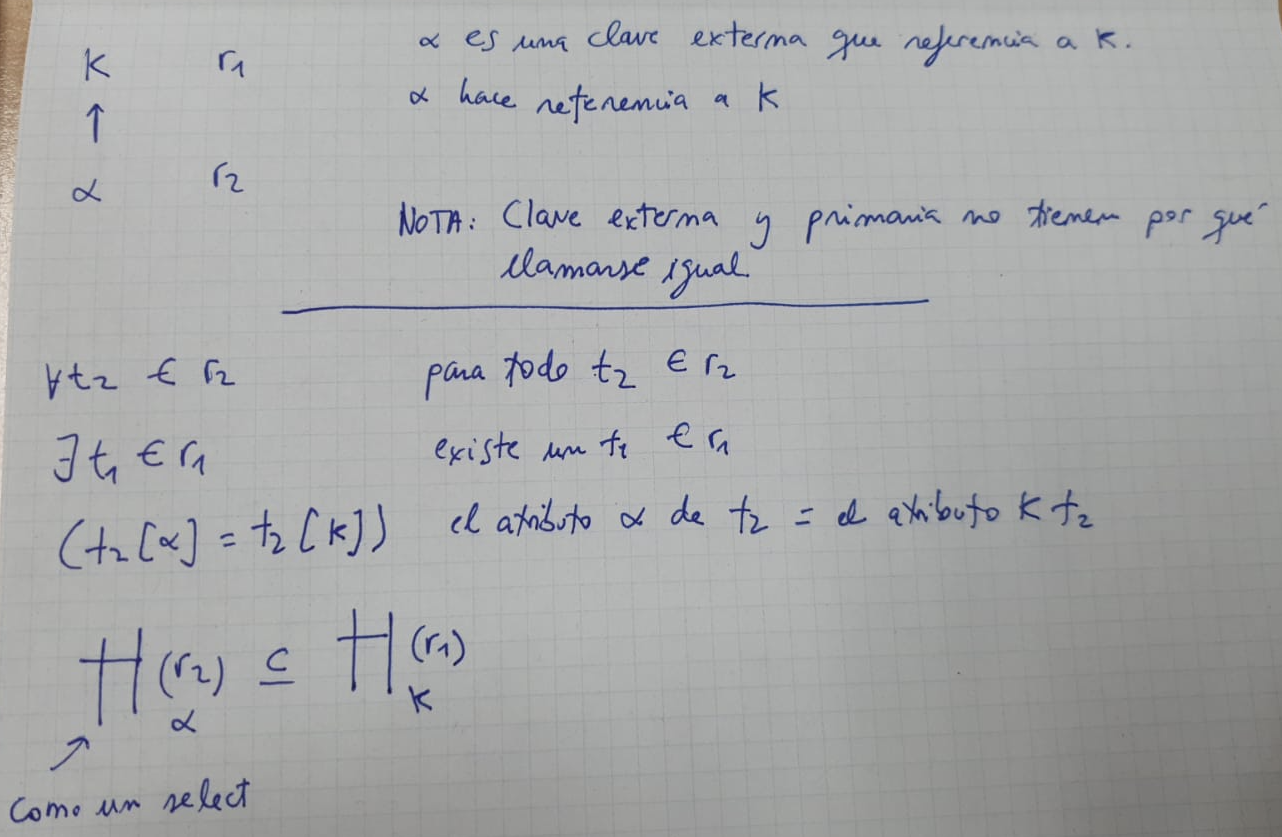 K r1 α es una clave externa que referencia a K.
↑ α hace referencia a K
α r2
NOTA: Clave externa y primaria no tienen por qué
llamarse igual
∀t2 ∈ r2 para todo t2 ∈ r2
∃t1 ∈ r1 existe un t1 ∈ r1
(t2[α] = t2[K]) el atributo α de t2 = el atributo K t2
Π α (r2) ⊆ Π K (r1)
Como un select